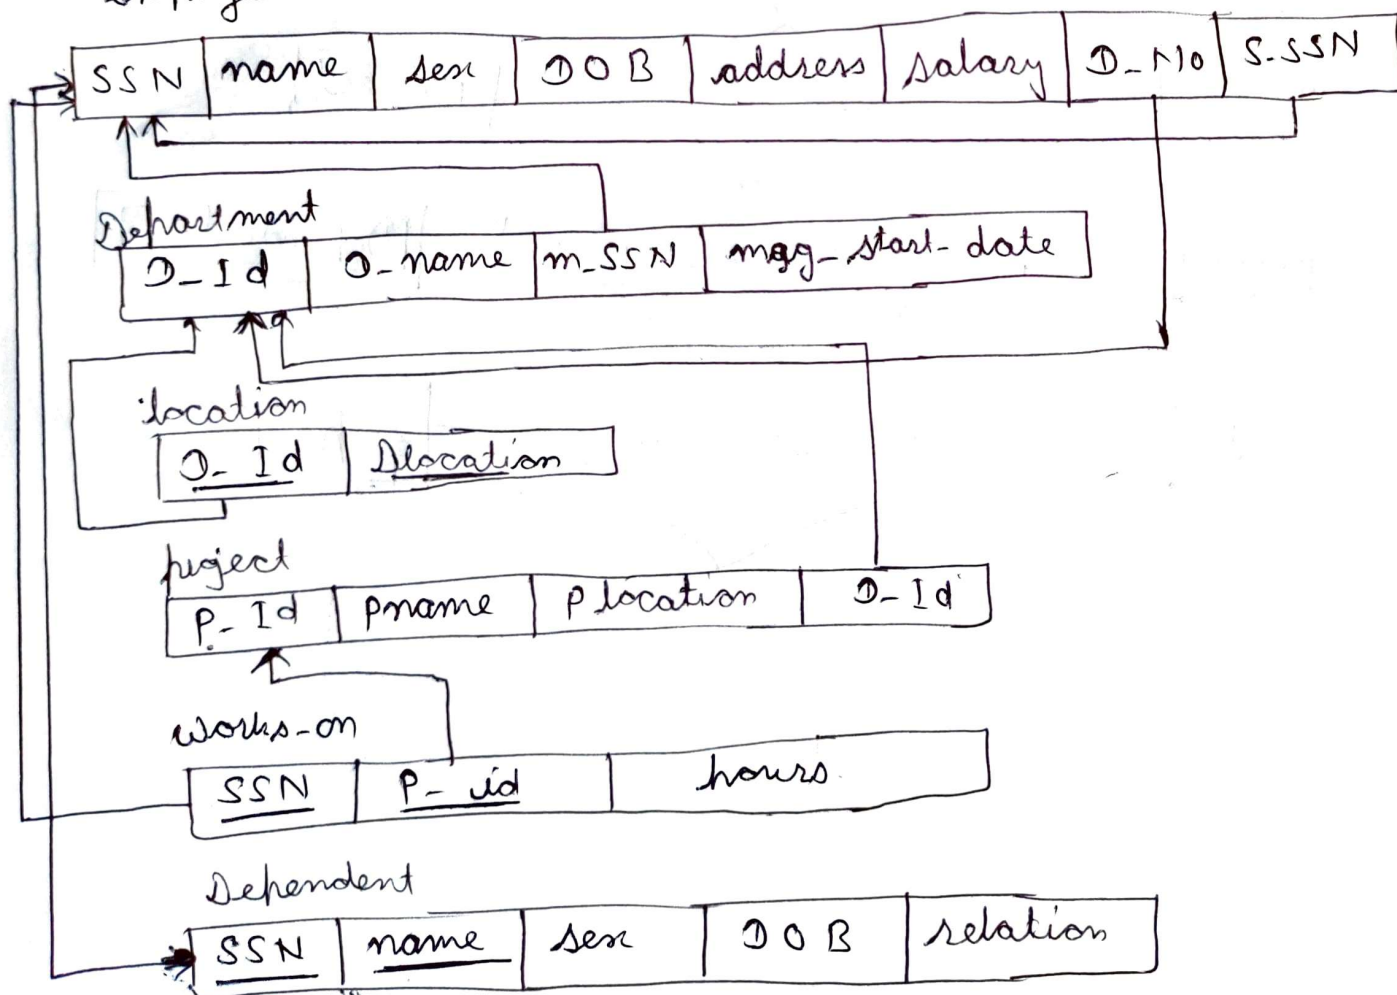 SSN name sex DOB address salary D_No S-SSN
Department
D_Id D_name m_SSN mgg_start_date
location
D_Id Dlocation
project
P_Id Pname Plocation D_Id
works-on
SSN P_id hours
Dependent
SSN name sex DOB relation